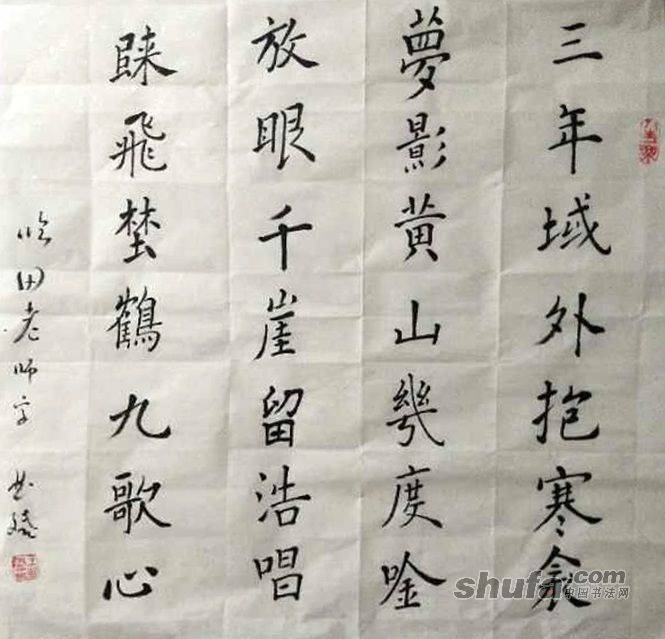 三年域外抱寒衾
夢影黄山幾度唫
放眼千崖留浩唱
踈飛埜鶴九歌心
临田老师字
shufa.com
中国书法网